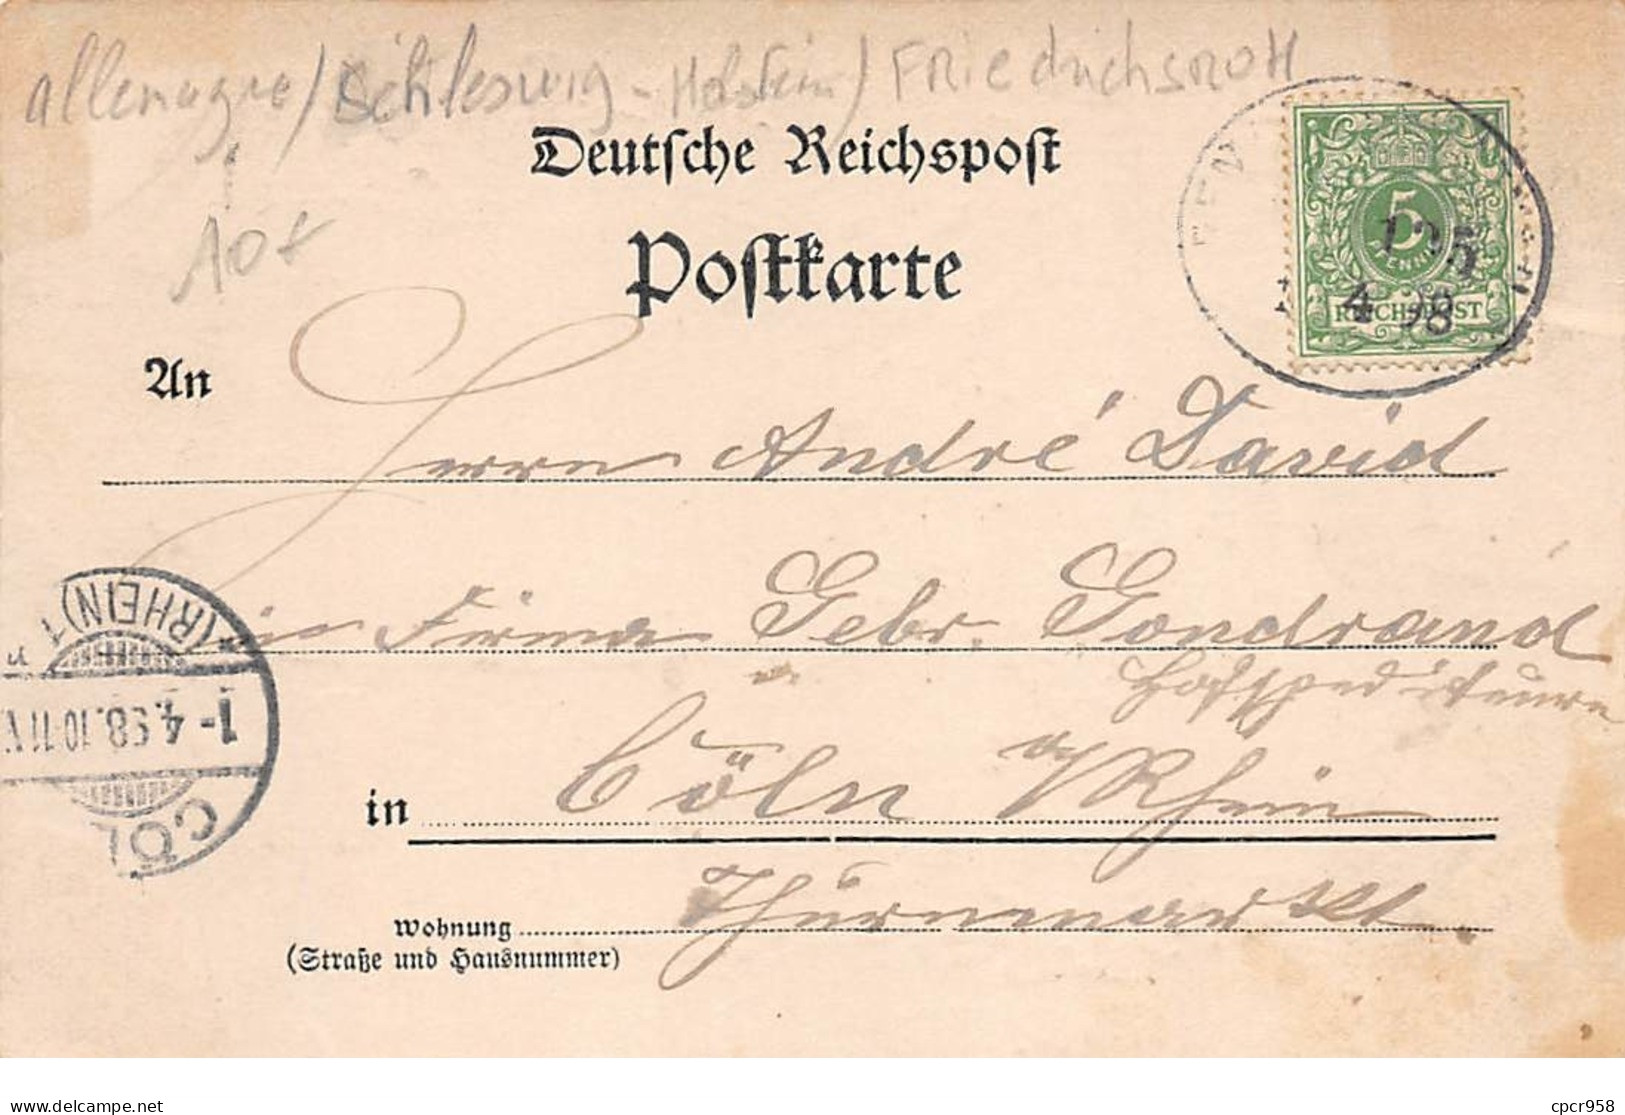 allemagne / Schleswig - Holstein / FRiedrichsRoH
Deutsche Reichspost
Postkarte
5
PFENNIG
REICHSPOST
125
4 98
10 €
An
Herrn André David
in Firma Gebr. Gondrand
Hofspediteure
in Cöln a/Rhein
Thurnmarkt
Wohnung
(Straße und Hausnummer)
CÖL
1-4.98.10-11 V.
*(RHEIN) 1
delcampe.net
cpcr958